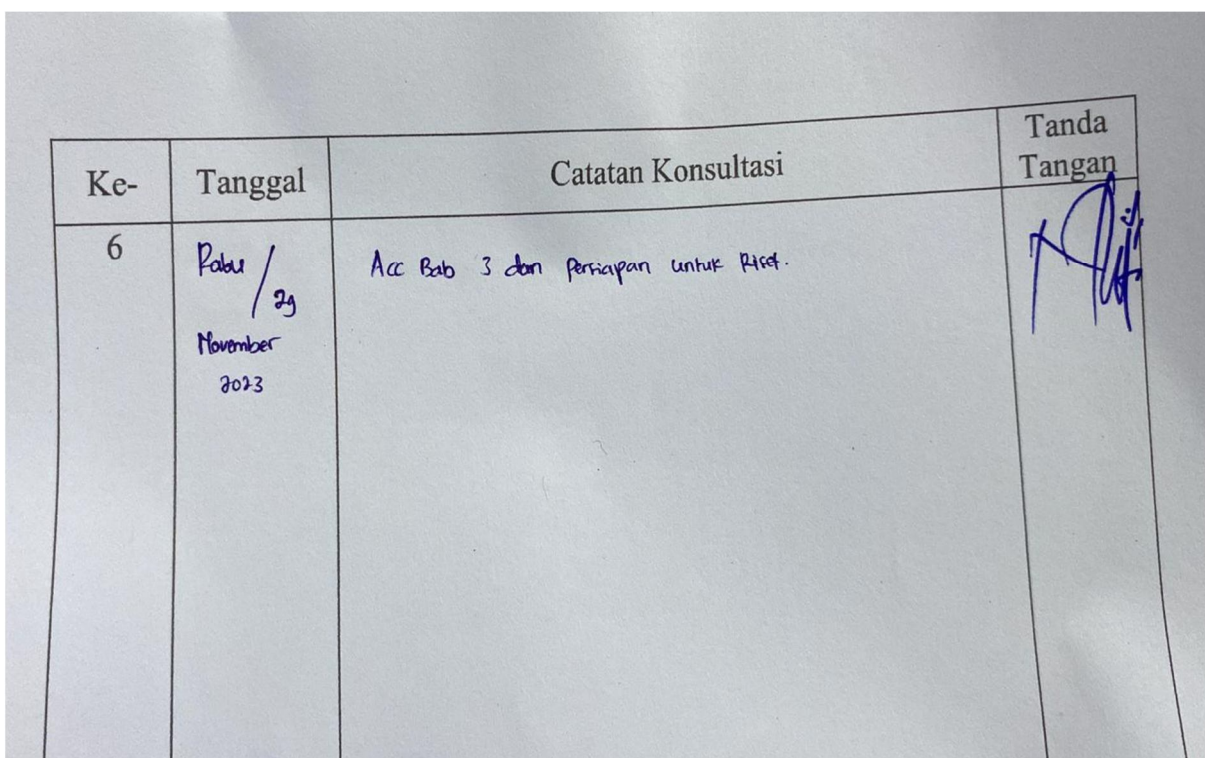 Ke-
Tanggal
Catatan Konsultasi
Tanda
Tangan
6
Rabu /
29
November
2023
Acc Bab 3 dan Persiapan untuk Riset.